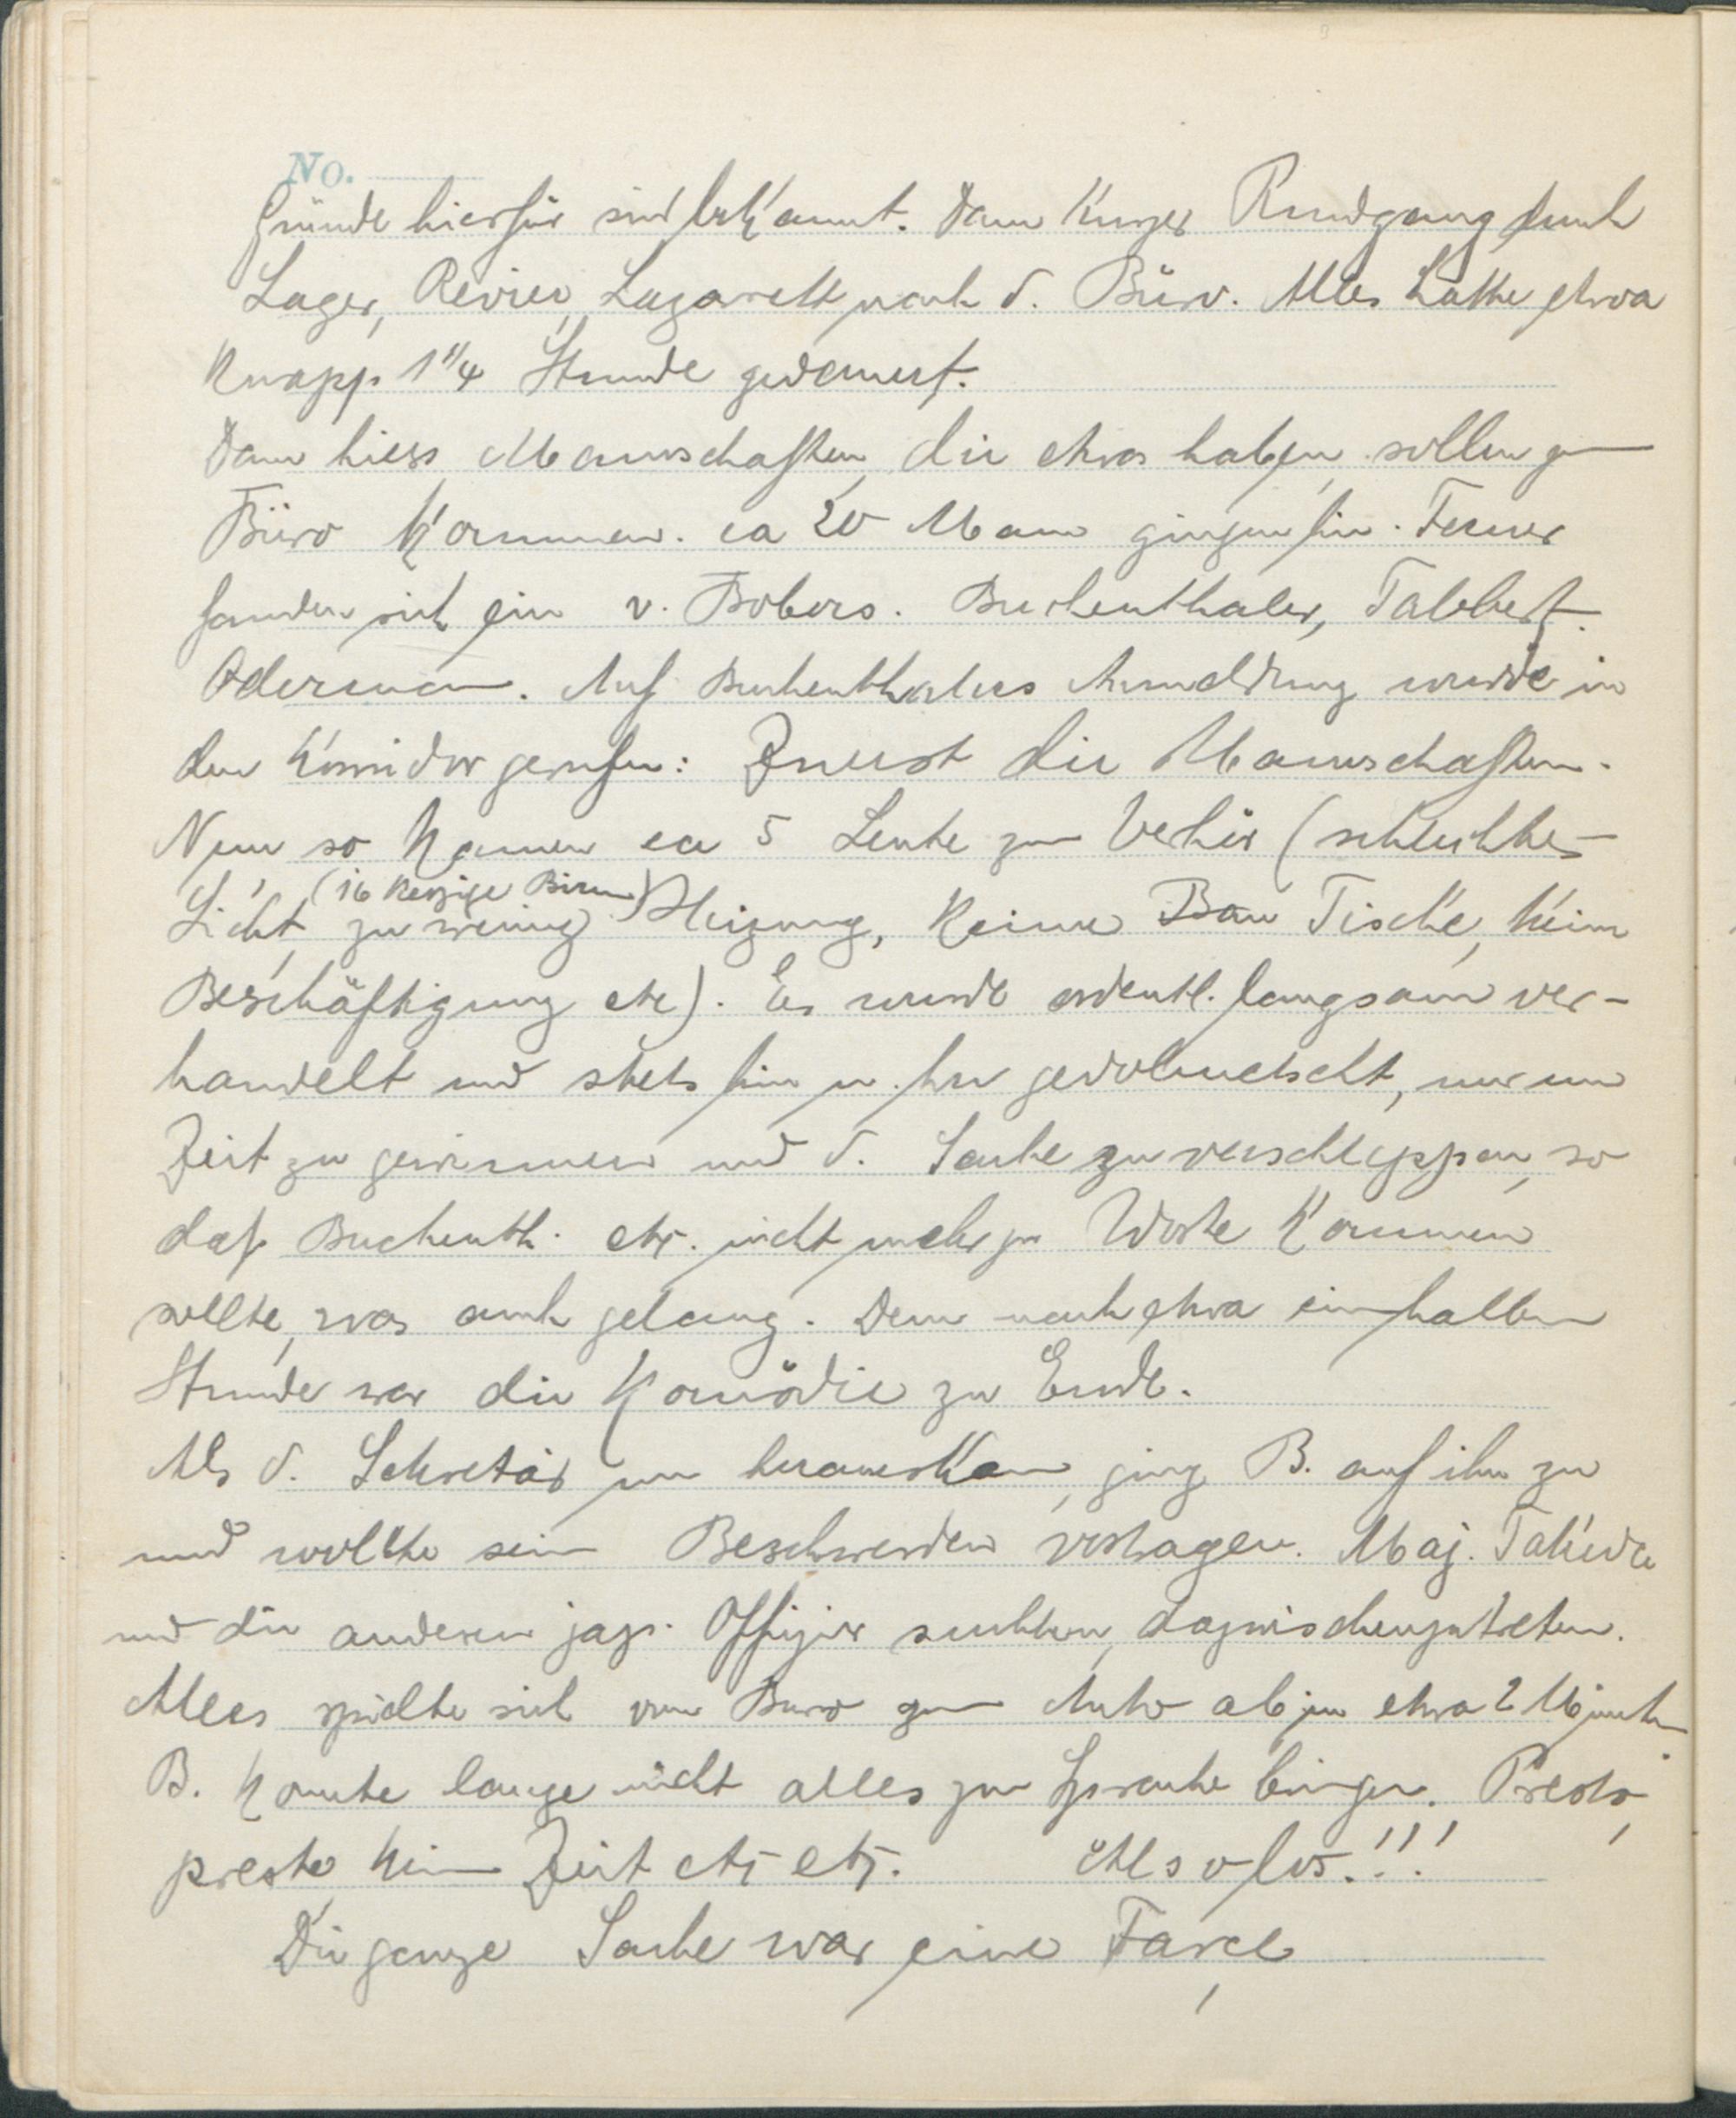 No.
Gründe hierfür sind bekannt. Dann kurzer Rundgang durch
Lager, Revier, Lazarett nach d. Büro. Alles hatte etwa
knapp 1 1/4 Stunde gedauert.
Dann hiess, Mannschaften, die etwas haben, sollen zum
Büro kommen. ca 20 Mann gingen hin. Ferner
fanden sich ein v. Bobers. Buchenthaler, Tabbert.
Oderman. Auf Buchenthalers Anmeldung wurde in
den Korridor gerufen: Zuerst die Mannschaften.
Nun so kamen ca 5 Leute zum Vehör (schlechtes
(16 kerzige Birnen)
Licht, zu wenig Heizung, keine Bän Tische, keine
Beschäftigung etc). Es wurde ordentl. langsam ver-
handelt und stets hin u. her gedolmetscht, nur um
Zeit zu gewinnen und d. Sache zu verschleppen, so
daß Buchenth. etc. nicht mehr zu Worte kommen
sollte, was auch gelang. Denn nach etwa einer halben
Stunde war die Komödie zu Ende.
Als d. Sekretär nun herauskam, ging B. auf ihn zu
und wollte seine Beschwerden vortragen. Maj. Takeda
und die anderen jap. Offizier suchten, dazwischenzutreten.
Alles spielte sich vom Buro zum Auto ab in etwa 2 Minuten
B. konnte lange nicht alles zur Sprache bringen. Presto,
presto, keine Zeit etc etc. Also los.!!!
Die ganze Sache war eine Farce